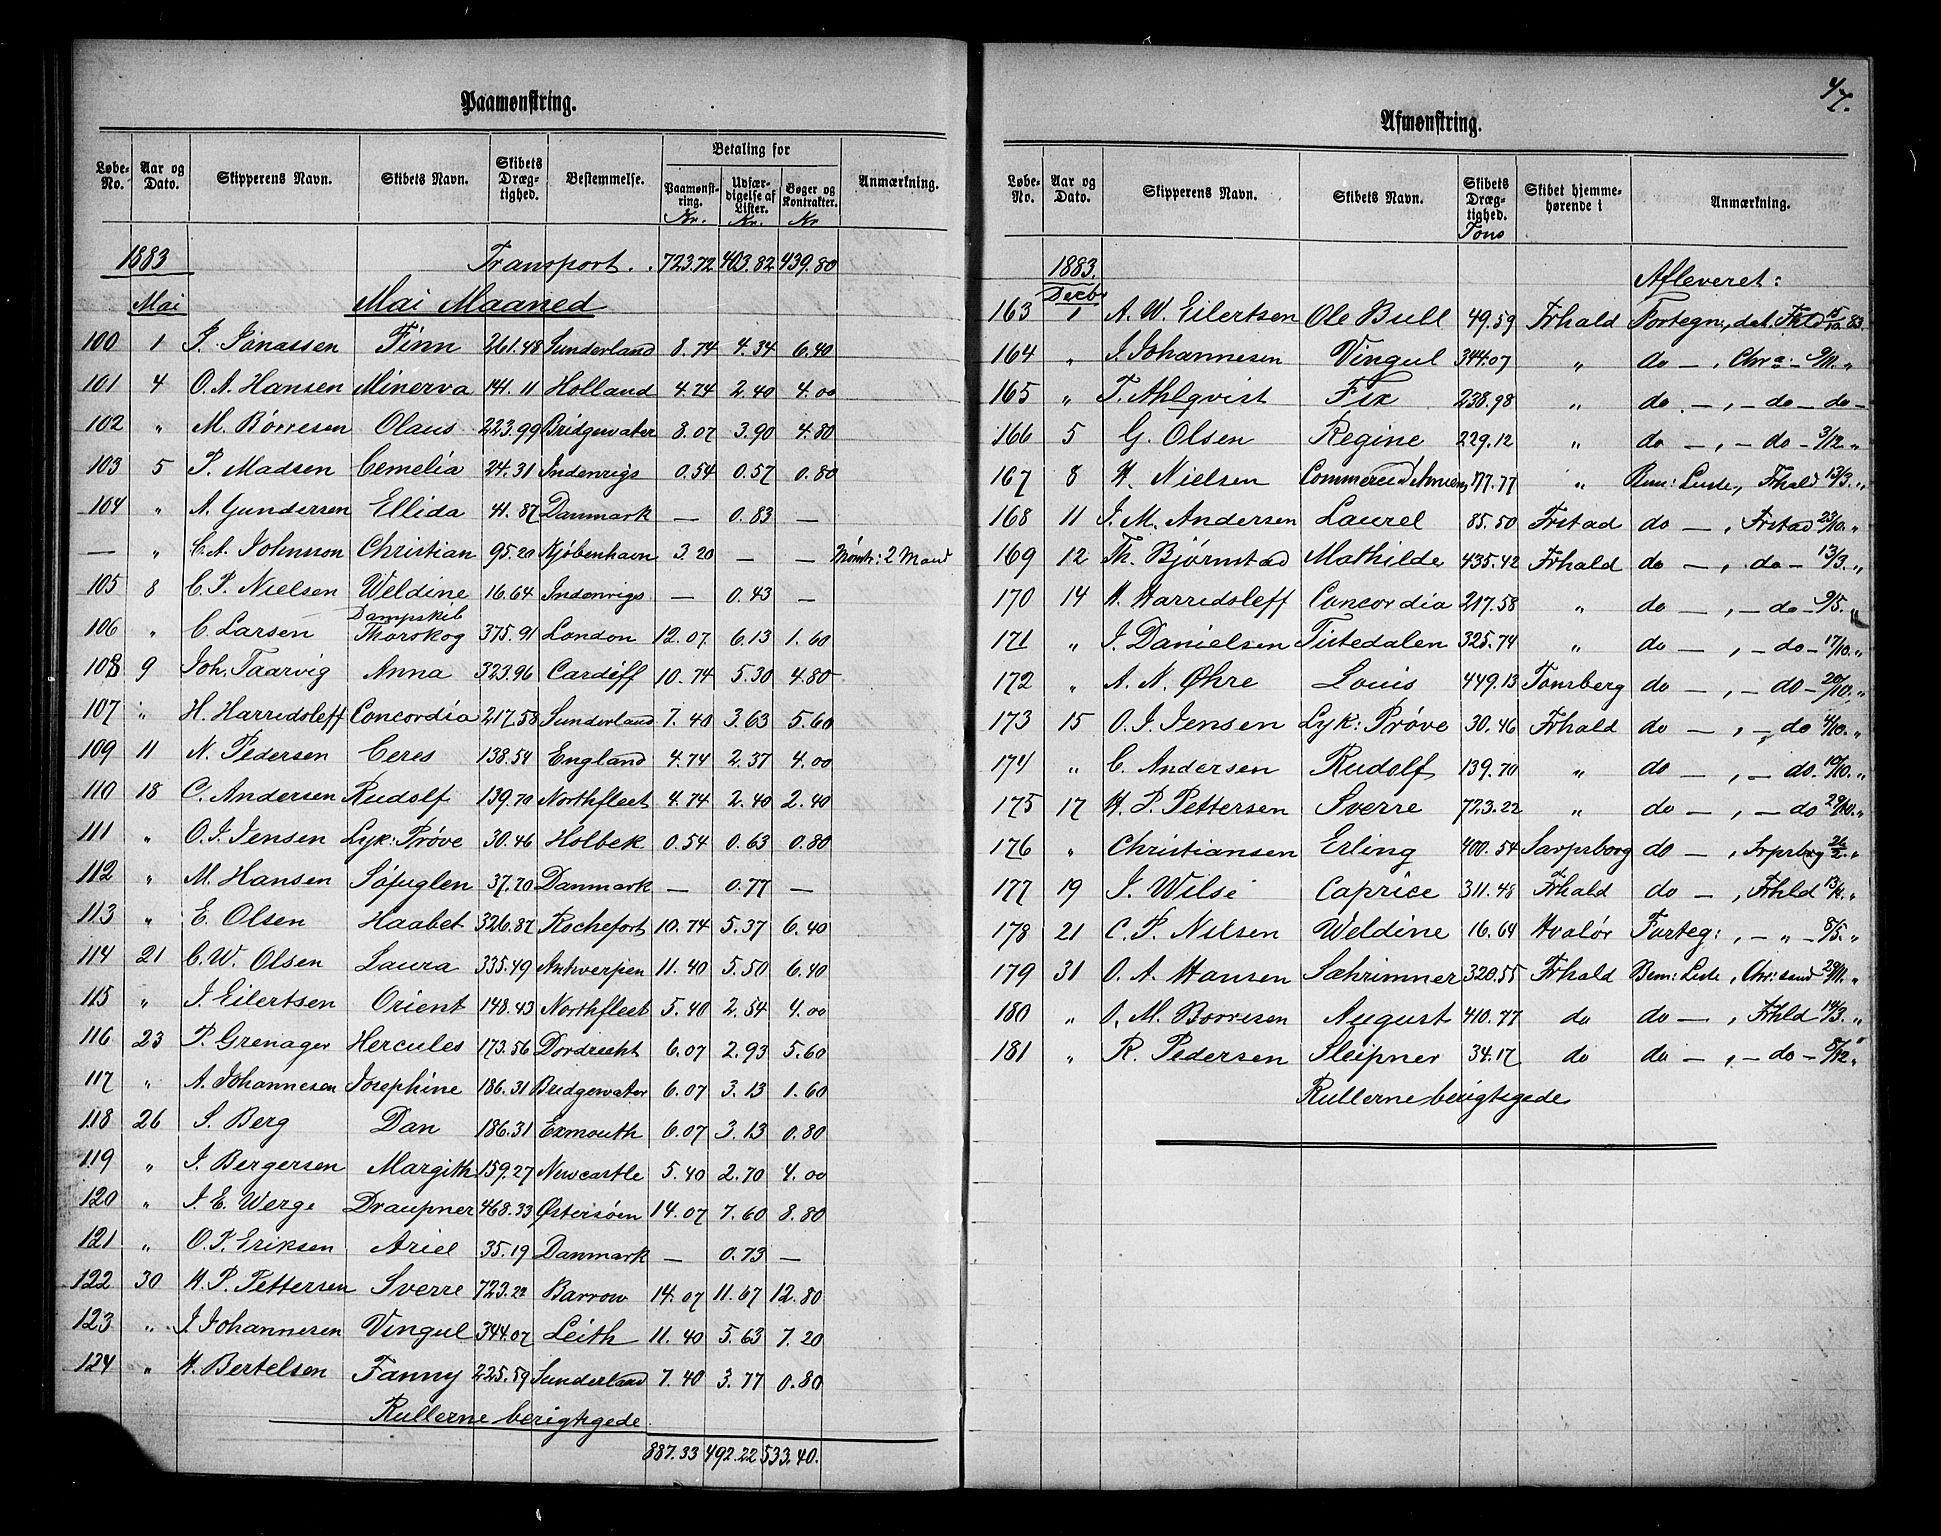 Paamønstring.
Løbe-No. | Aar og Dato. | Skipperens Navn. | Skibets Navn. | Skibets Dræg-tighed. | Bestemmelse. | Betaling for | Anmærkning.
Paamønst-ring. Kr. | Udfær-digelse af Lister. Kr. | Bøger og Kontrakter. Kr
1883 Transport . . 723.72 403.82 439.80
Mai Mai Maaned
100 1 J. Jonassen Finn 261.48 Sunderland 8.74 4.34 6.40
101 4 O. A. Hansen Minerva 141.11 Holland 4.74 2.40 4.00
102 " M. Børresen Olaus 223.99 Bridgewater 8.07 3.90 4.80
103 5 P. Madsen Cemelia 24.31 Indenrigs 0.54 0.57 0.80
104 " A. Gundersen Ellida 41.87 Danmark — 0.83 —
— " C. A. Johnsson Christian 95.20 Kjøbenhavn 3.20 — — Mønstr: 2 Mand
105 8 C. P. Nielsen Weldine 16.64 Indenrigs — 0.43 —
106 " C. Larsen Dampskib Thorskog 375.91 London 12.07 6.13 1.60
108 9 Joh. Taarvig Anna 323.96 Cardiff 10.74 5.30 4.80
107 " H. Harridsleff Concordia 217.58 Sunderland 7.40 3.63 5.60
109 11 N. Pedersen Ceres 138.54 England 4.74 2.37 4.00
110 18 C. Andersen Rudolf 139.70 Northfleet 4.74 2.40 2.40
111 " O. J. Jensen Lyk: Prøve 30.46 Holbek 0.54 0.63 0.80
112 " M. Hansen Søfuglen 37.70 Danmark — 0.77 —
113 " E. Olsen Haabet 326.87 Rochefort 10.74 5.37 6.40
114 21 C. W. Olsen Laura 335.49 Antwerpen 11.40 5.50 6.40
115 " J. Eilertsen Orient 148.43 Northfleet 5.40 2.54 4.00
116 23 P. Grenager Hercules 173.56 Dordrecht 6.07 2.93 5.60
117 " A. Johannesen Josephine 186.31 Bridgewater 6.07 3.13 1.60
118 26 S. Berg Dan 186.31 Exmouth 6.07 3.13 0.80
119 " J. Bergersen Margith 159.27 Newcastle 5.40 2.70 4.00
120 " J. E. Werge Draupner 468.33 Østersøen 14.07 7.60 8.80
121 " O. P. Eriksen Ariel 35.19 Danmark — 0.73 —
122 30 H. P. Pettersen Sverre 723.22 Barrow 14.07 11.67 12.80
123 " J. Johannesen Vingul 344.07 Leith 11.40 5.63 7.20
124 " H. Bertelsen Fanny 225.59 Sunderland 7.40 3.77 0.80
Rullerne berigtigede
887.33 492.22 533.40.
47.
Afmønstring.
Løbe-No. | Aar og Dato. | Skipperens Navn. | Skibets Navn. | Skibets Dræg-tighed. Tons | Skibet hjemme-hørende i | Anmærkning.
1883. Afleveret:
Decbr
163 1 A. W. Eilertsen Ole Bull 49.59 Frhald Fortegn., det. Fhld 15/10 83.
164 " J. Johannesen Vingul 344.07 " do —, Chra: - 9/11. "
165 " T. Ahlqvist Fix 238.98 " do . —, — do — do —
166 5 G. Olsen Regine 229.12 " do —, — do — 3/12 "
167 8 H. Nielsen Commerce d'Amiens 177.77 " Bem: Liste, Fhald 13/3. "
168 11 J. M. Andersen Laurel 85.50 Frstad do —, Frstad 23/10. "
169 12 Th. Bjørnstad Mathilde 435.42 Frhald do —, do — 13/3. "
170 14 H. Harridsleff Concordia 217.58 " do —, — do — 9/5. "
171 " J. Danielsen Tistedalen 325.74 " do —, — do — 17/10. "
172 " A. N. Øhre Louis 449.13 Tønsberg do —, — do — 20/10. "
173 15 O. J. Jensen Lyk: Prøve 30.46 Frhald do —, — do 4/10. "
174 " C. Andersen Rudolf 139.70 " do —, — do. 10/10. "
175 17 H. P. Pettersen Sverre 723.22 " do —, — do 29/10. "
176 " Christiansen Erling 400.54 Sarpsborg do —, Srpsbrg 26/2. "
177 19 J. Wilse Caprice 311.48 Frhald do —, Frhld "
178 21 C. P. Nilsen Weldine 16.64 Hvalør Forteg: , — " — 8/5. "
179 31 O. A. Hansen Sæhrimner 320.55 Frhald Bem: Liste, Chr: sand 29/11. "
180 " O. M. Borresen August 410.77 do do —, Frhld 14/3. "
181 " R. Pedersen Sleipner 34.17 do do —, — do — 8/12 "
Rullerne berigtigede